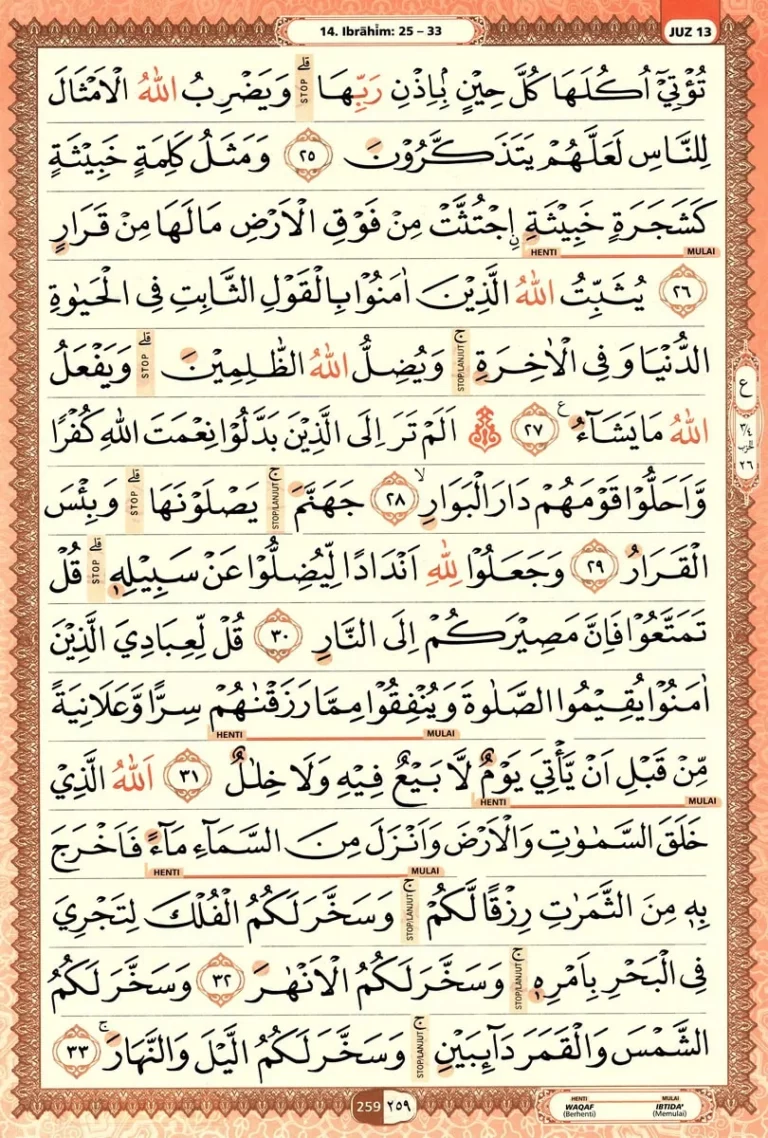 14. Ibrāhīm: 25 – 33
JUZ 13
تُؤْتِيْٓ اُكُلَهَا كُلَّ حِيْنٍ ۢبِاِذْنِ رَبِّهَاۗ STOP وَيَضْرِبُ اللّٰهُ الْاَمْثَالَ
لِلنَّاسِ لَعَلَّهُمْ يَتَذَكَّرُوْنَ ٢٥ وَمَثَلُ كَلِمَةٍ خَبِيْثَةٍ
كَشَجَرَةٍ خَبِيْثَةِ ِۨاجْتُثَّتْ مِنْ فَوْقِ الْاَرْضِ مَا لَهَا مِنْ قَرَارٍ
MULAI HENTI
٢٦ يُثَبِّتُ اللّٰهُ الَّذِيْنَ اٰمَنُوْا بِالْقَوْلِ الثَّابِتِ فِى الْحَيٰوةِ
الدُّنْيَا وَفِى الْاٰخِرَةِۚ STOP/LANJUT وَيُضِلُّ اللّٰهُ الظّٰلِمِيْنَۗ STOP وَيَفْعَلُ
اللّٰهُ مَا يَشَاۤءُ ࣖ ٢٧ ۞ اَلَمْ تَرَ اِلَى الَّذِيْنَ بَدَّلُوْا نِعْمَتَ اللّٰهِ كُفْرًا
وَّاَحَلُّوْا قَوْمَهُمْ دَارَ الْبَوَارِۙ ٢٨ جَهَنَّمَۚ STOP/LANJUT يَصْلَوْنَهَاۗ STOP وَبِئْسَ
الْقَرَارُ ٢٩ وَجَعَلُوْا لِلّٰهِ اَنْدَادًا لِّيُضِلُّوْا عَنْ سَبِيْلِهٖۗ STOP قُلْ
تَمَتَّعُوْا فَاِنَّ مَصِيْرَكُمْ اِلَى النَّارِ ٣٠ قُلْ لِّعِبَادِيَ الَّذِيْنَ
اٰمَنُوْا يُقِيْمُوا الصَّلٰوةَ وَيُنْفِقُوْا مِمَّا رَزَقْنٰهُمْ سِرًّا وَّعَلَانِيَةً
MULAI HENTI
مِّنْ قَبْلِ اَنْ يَّأْتِيَ يَوْمٌ لَّا بَيْعٌ فِيْهِ وَلَا خِلٰلٌ ٣١ اَللّٰهُ الَّذِيْ
MULAI HENTI
خَلَقَ السَّمٰوٰتِ وَالْاَرْضَ وَاَنْزَلَ مِنَ السَّمَاۤءِ مَاۤءً فَاَخْرَجَ
MULAI HENTI
بِهٖ مِنَ الثَّمَرٰتِ رِزْقًا لَّكُمْۚ STOP/LANJUT وَسَخَّرَ لَكُمُ الْفُلْكَ لِتَجْرِيَ
فِى الْبَحْرِ بِاَمْرِهٖۚ STOP/LANJUT وَسَخَّرَ لَكُمُ الْاَنْهٰرَ ٣٢ وَسَخَّرَ لَكُمُ
الشَّمْسَ وَالْقَمَرَ دَاۤىِٕبَيْنِۚ STOP/LANJUT وَسَخَّرَ لَكُمُ الَّيْلَ وَالنَّهَارَۚ ٣٣
ع
٣/٤
الحزب
٢٦
259 ٢٥٩
HENTI MULAI
WAQAF IBTIDA'
(Berhenti) (Memulai)